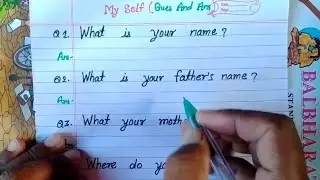 My Self (Ques And Ans)
Q1. What is your name?
Ans-
Q2. What is your father's name?
Ans-
Q3. What your moth
Where do yo
BAIBHARA
STAN